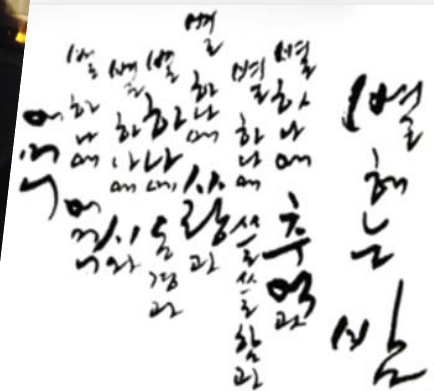 별 헤는 밤
별 하나에 추억과
별 하나에 쓸쓸함과
별 하나에 사랑과
별 하나에 동경과
별 하나에 시와
별 하나에 어머니
어머니